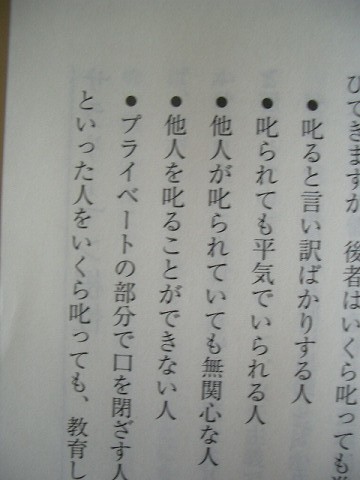 びてきますが、後者はいくら叱っても
●叱ると言い訳ばかりする人
●叱られても平気でいられる人
●他人が叱られていても無関心な人
●他人を叱ることができない人
●プライベートの部分で口を閉ざす人
といった人をいくら叱っても、教育し